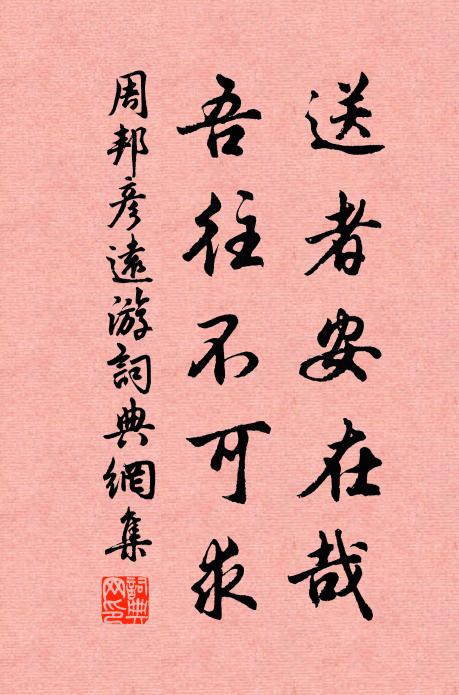 送者安在哉
吾往不可求
周邦彦遠游詞典網集
詞典网印